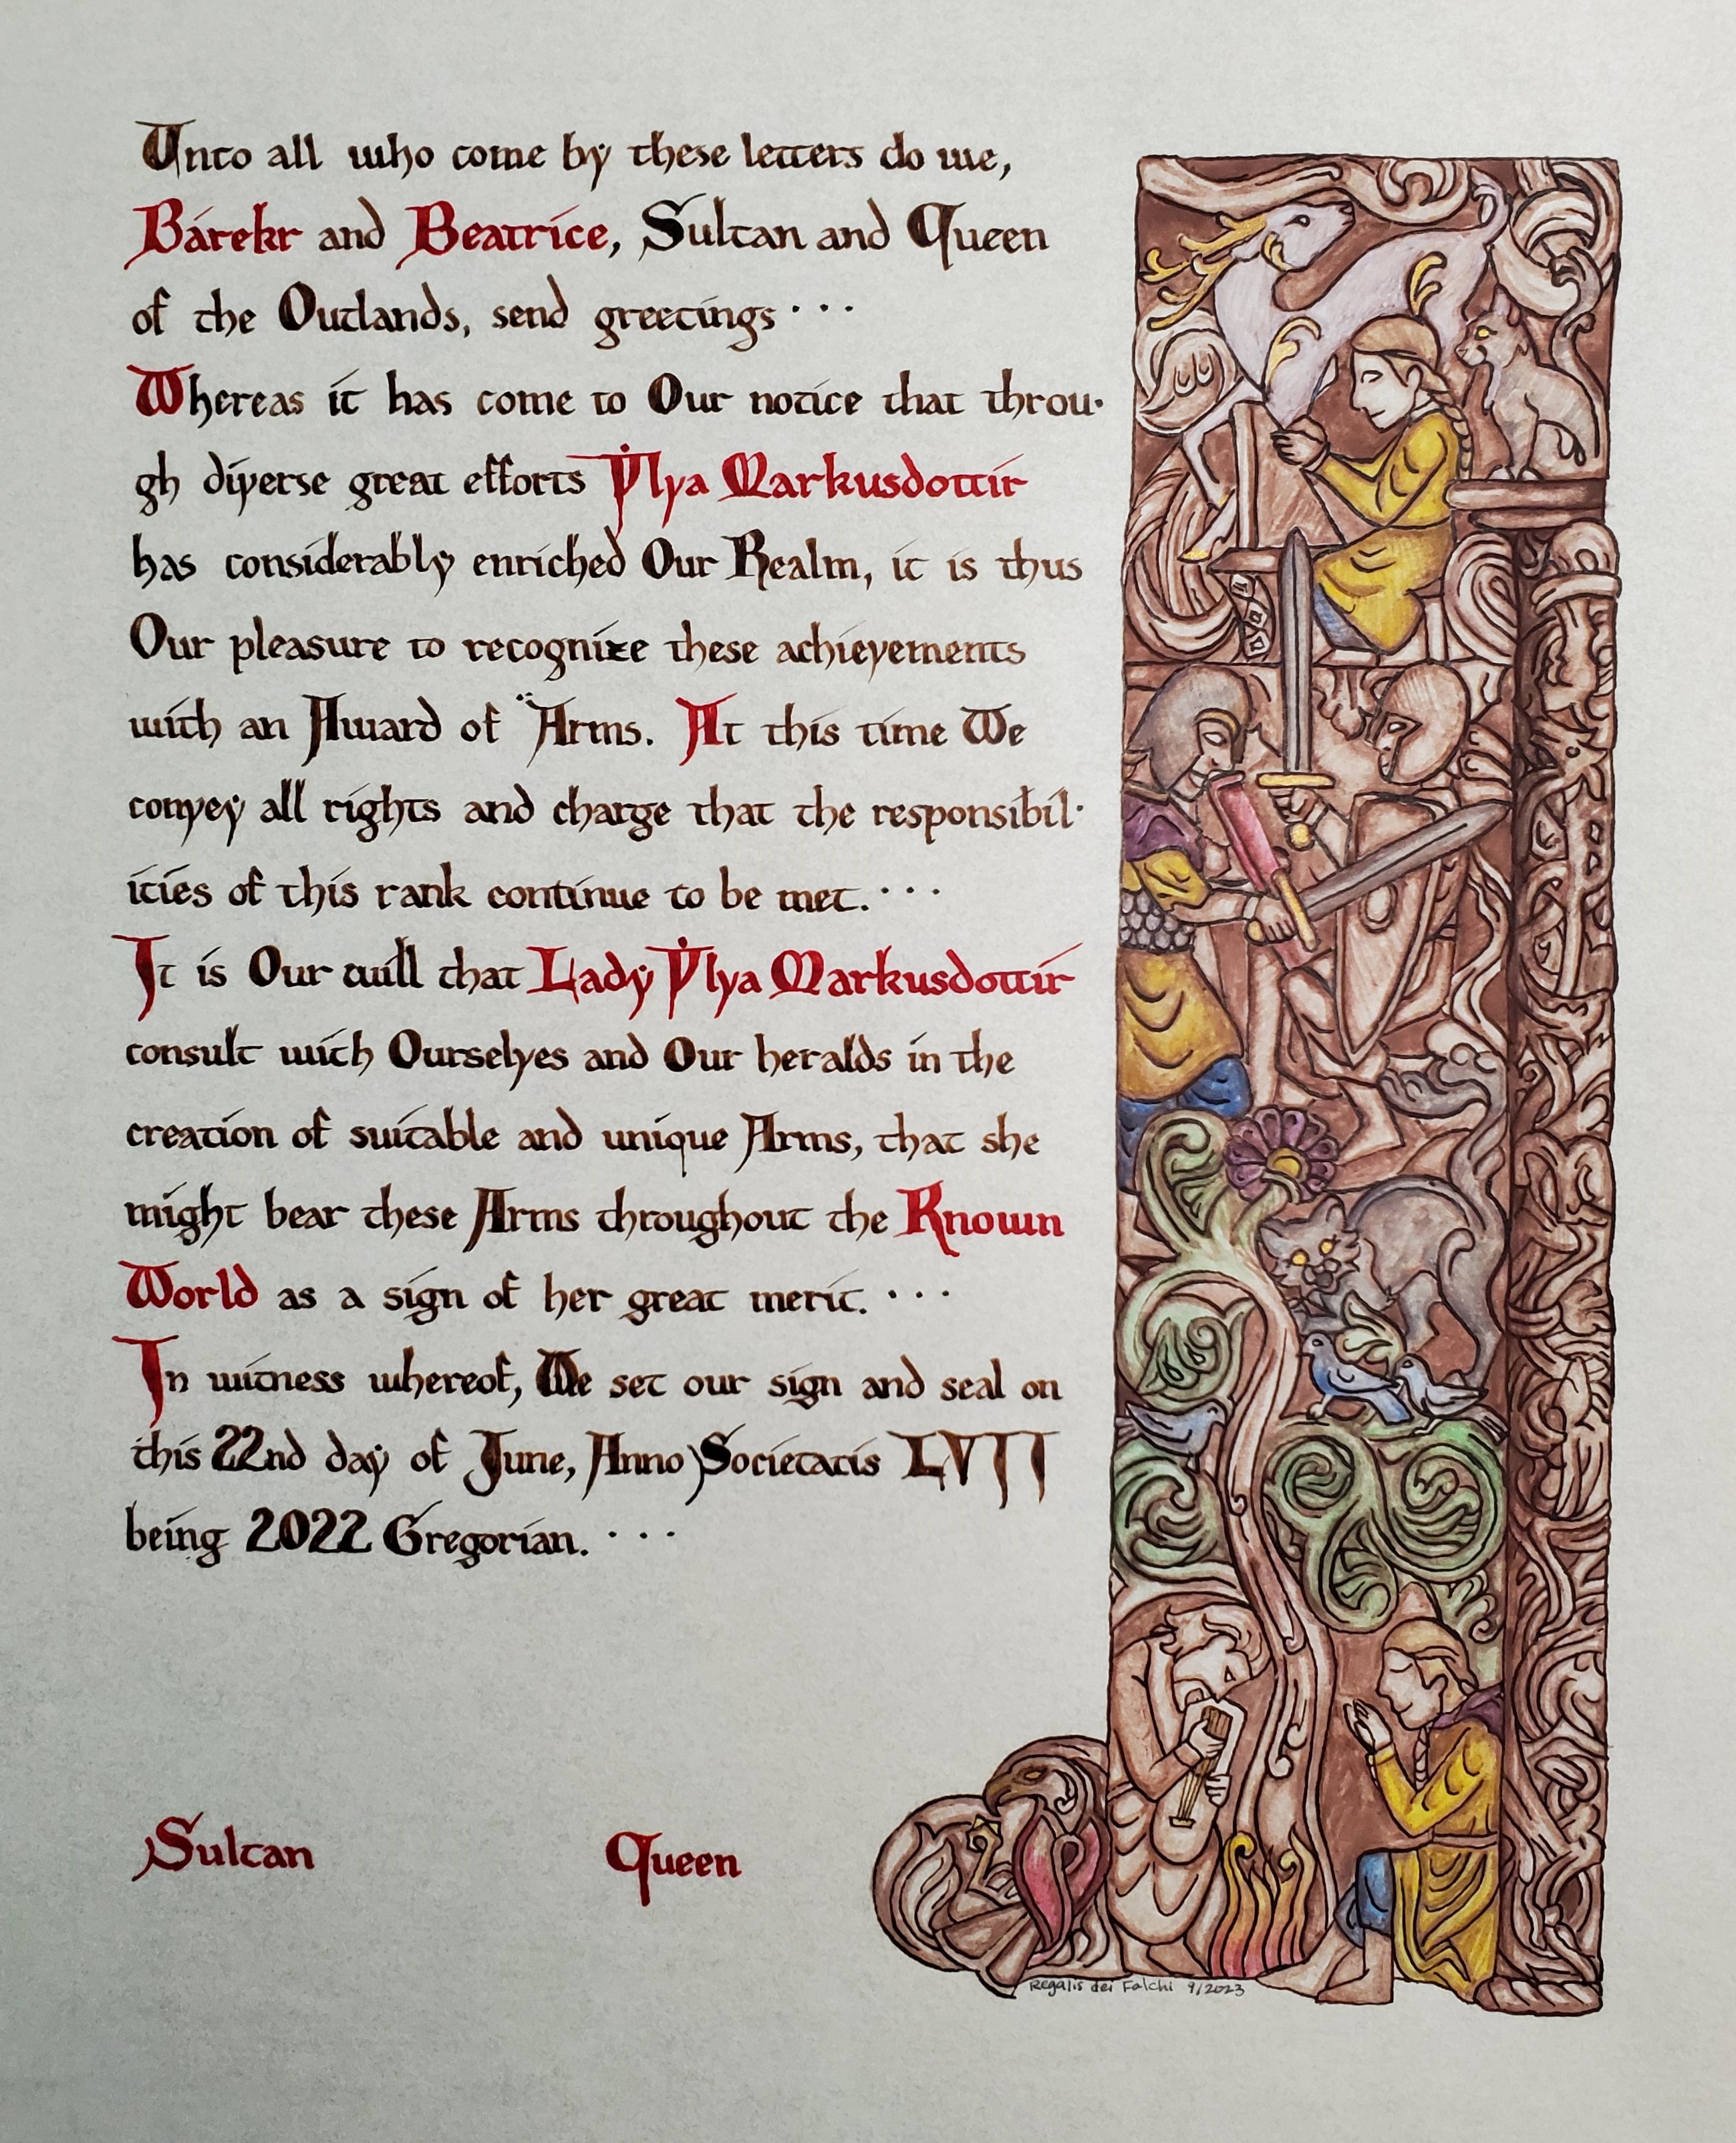 Unto all who come by these letters do we,
Bárekr and Beatrice, Sultan and Queen
of the Outlands, send greetings · · ·
Whereas it has come to Our notice that throu·
gh diverse great efforts Ylya Markusdottir
has considerably enriched Our Realm, it is thus
Our pleasure to recognize these achievements
with an Award of Arms. At this time We
convey all rights and charge that the responsibil·
ities of this rank continue to be met. · · ·
It is Our will that Lady Ylya Markusdottir
consult with Ourselves and Our heralds in the
creation of suitable and unique Arms, that she
might bear these Arms throughout the Known
World as a sign of her great merit. · · ·
In witness whereof, We set our sign and seal on
this 22nd day of June, Anno Societatis LVII
being 2022 Gregorian. · · ·
Sultan Queen
Regalis dei Falchi 9/2023